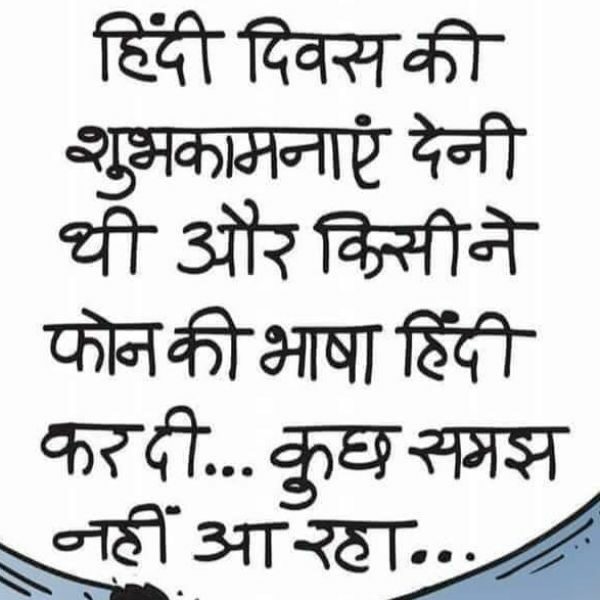 हिंदी दिवस की
शुभकामनाएं देनी
थी और किसी ने
फोन की भाषा हिंदी
कर दी... कुछ समझ
नहीं आ रहा...